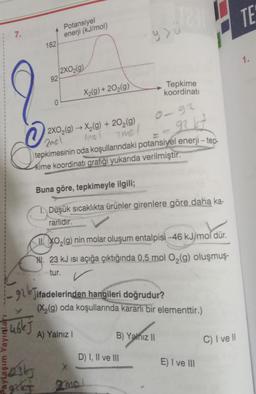 TE
7.
Potansiyel
enerji (kJ/mol)
182
1.
2XO₂(g)
92
Tepkime
koordinatı
X₂(g) + 2O₂(g)
0
0-92
2XO₂(g) → X₂(g) + 2O₂(g)
2mol 1mol 2mol
tepkimesinin oda koşullarındaki potansiyel enerji – tep-
kime koordinatı grafiği yukarıda verilmiştir.
Buna göre, tepkimeyle ilgili;
I. Düşük sıcaklıkta ürünler girenlere göre daha ka-
rarlıdır.
II. XO₂(g) nin molar oluşum entalpisi -46 kJ/mol dür.
III. 23 kJ ısı açığa çıktığında 0,5 mol O₂(g) oluşmuş-
tur.
ifadelerinden hangileri doğrudur?
(X₂(g) oda koşullarında kararlı bir elementtir.)
A) Yalnız I
B) Yalnız II
C) I ve II
D) I, II ve III
E) I ve III
2mol